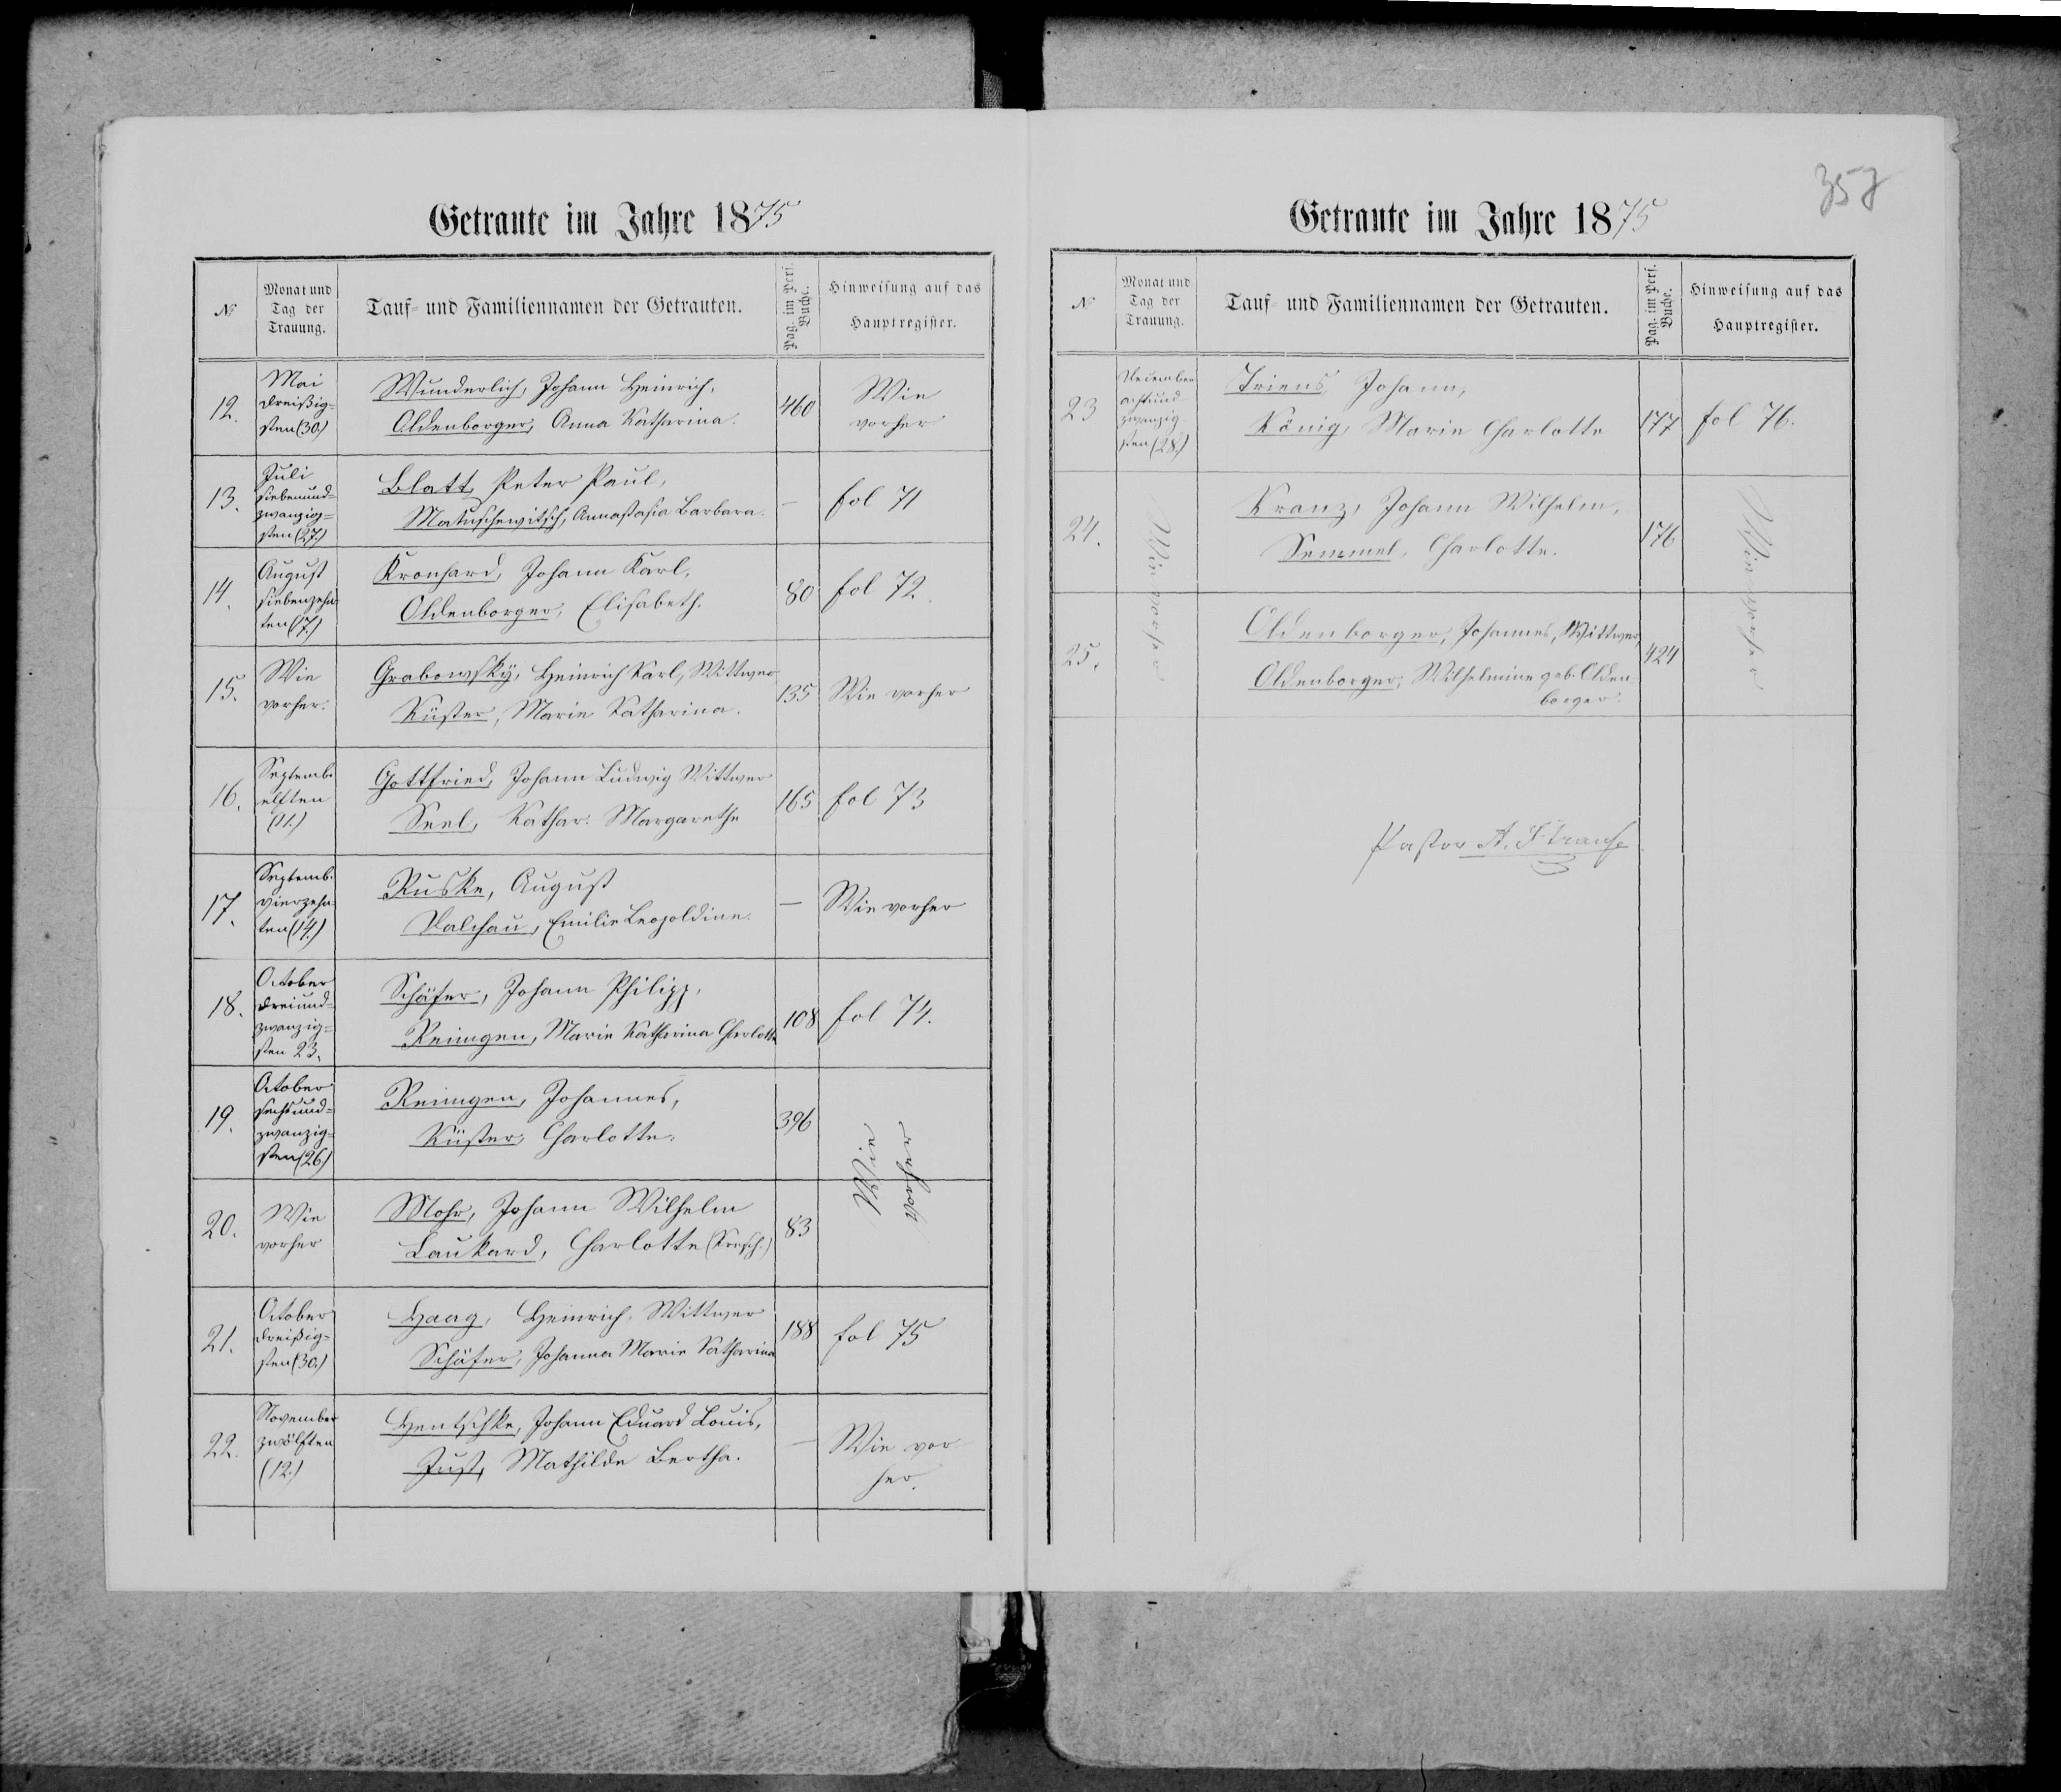 Getraute im Jahre 1875
№
Monat und
Tag der
Trauung.
Tauf- und Familiennamen der Getrauten.
Pag. im Pers.
Buche.
Hinweisung auf das
Hauptregister.
12.
Mai
dreißig-
sten (30.)
Wunderlich, Johann Heinrich,
Oldenborger, Anna Katharina.
460
Wie
vorher
13.
Juli
siebenund-
zwanzig-
sten (27.)
Blatt, Peter Paul,
Matuschewitsch, Annastasia Barbara.
—
fol 71
14.
August
siebenzehn-
ten (17.)
Kronhard, Johann Karl,
Oldenborger, Elisabeth.
80
fol 72.
15.
Wie
vorher.
Grabowsky, Heinrich Karl, Wittwer
Küster, Marie Katharina.
135
Wie vorher
16.
Septemb.
elften
(11.)
Gottfried, Johann Ludwig Wittwer
Seel, Kathar. Margarethe
165
fol 73
17.
Septemb.
vierzehn-
ten (14.)
Ruske, August
Valchau, Emilie Leopoldine.
—
Wie vorher
18.
October
dreiund-
zwanzig-
sten 23.
Schäfer, Johann Philipp,
Reiningen, Marie Katharina Charlotte
108
fol 74.
19.
October
sechsund-
zwanzig-
sten (26)
Reiningen, Johannes,
Küster, Charlotte.
396
Wie
vorher
20.
Wie
vorher
Mohr, Johann Wilhelm
Laukard, Charlotte
83
21.
October
dreißig-
sten (30.)
Haag, Heinrich, Wittwer
Schäfer, Johanna Marie Katharina
188
fol 75
22.
November
zwölften
(12.)
Hentschke, Johann Eduard Louis,
Just, Mathilde Bertha.
—
Wie vor
her.
357
Getraute im Jahre 1875
№
Monat und
Tag der
Trauung.
Tauf- und Familiennamen der Getrauten.
Pag. im Pers.
Buche.
Hinweisung auf das
Hauptregister.
23
December
achtund-
zwanzig-
sten (28.)
Triens, Johann,
König, Marie Charlotte
177
fol 76.
24.
Wie vorher
Kranz, Johann Wilhelm,
Semmel, Charlotte.
176
Wie vorher
25.
Oldenborger, Johannes, Wittwer,
Oldenborger, Wilhelmine geb. Olden-
borger.
424
Pastor A. Strauß